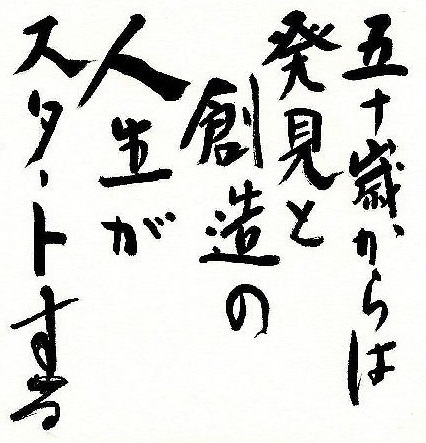 五十歳からは
発見と
創造の
人生が
スタートする